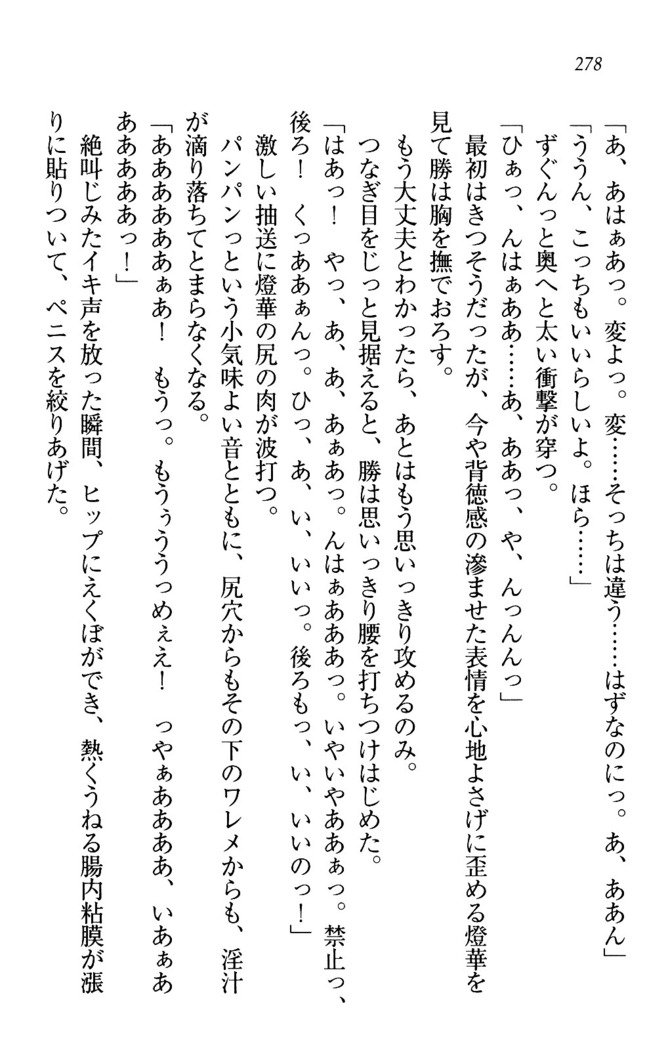 278
「あ、あはぁあっ。変よっ。変……そっちは違う……はずなのにっ。あ、ああん」
「ううん、こっちもいいらしいよ。ほら……」
ずぐんっと奥へと太い衝撃が穿つ。
「ひぁっ、んはぁああ……あ、ああっ、や、んっんんっ」
最初はきつそうだったが、今や背徳感の滲ませた表情を心地よさげに歪める燈華を
見て勝は胸を撫でおろす。
もう大丈夫とわかったら、あとはもう思いっきり攻めるのみ。
つなぎ目をじっと見据えると、勝は思いっきり腰を打ちつけはじめた。
「はあっ！　やっ、あ、あ、あぁあっ。んはぁあああっ。いやいやああぁっ。禁止っ、
後ろ！　くっああぁんっ。ひっ、あ、い、いいっ。後ろもっ、い、いいのっ！」
激しい抽送に燈華の尻の肉が波打つ。
パンパンっという小気味よい音とともに、尻穴からもその下のワレメからも、淫汁
が滴り落ちてとまらなくなる。
「ああああああぁあ！　もうっ。もうぅううっめぇえ！　っやぁああああ、いあぁあ
ああああああっ！」
絶叫じみたイキ声を放った瞬間、ヒップにえくぼができ、熱くうねる腸内粘膜が漲
りに貼りついて、ペニスを絞りあげた。